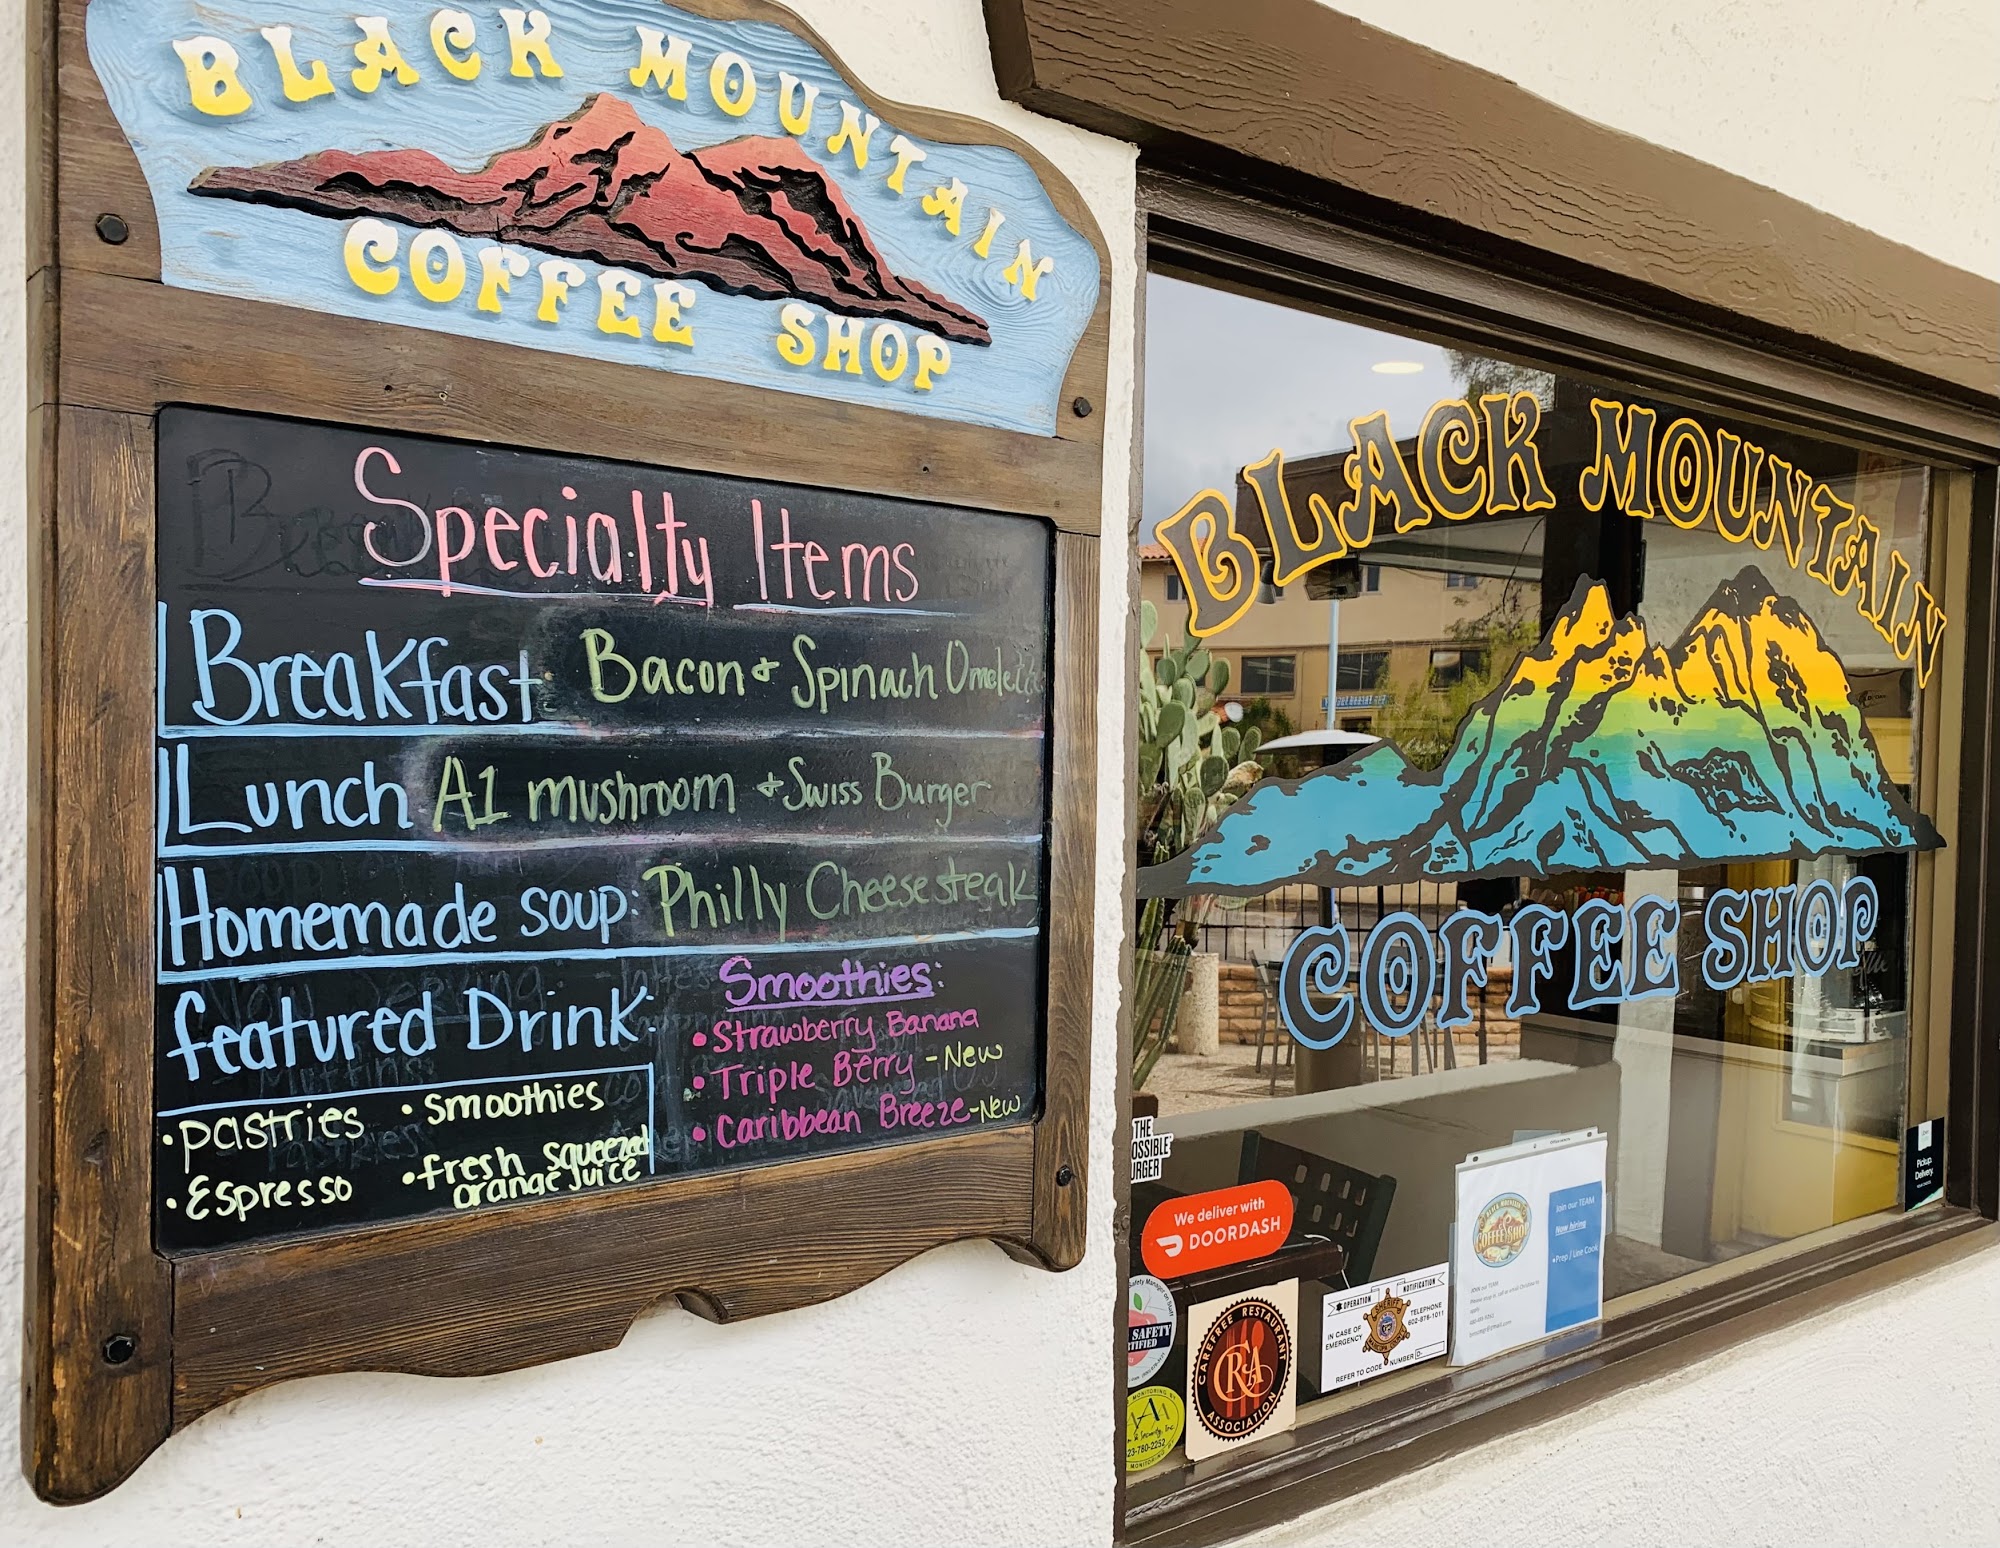 BLACK MOUNTAIN
COFFEE SHOP
Specialty Items
Breakfast Bacon & Spinach Omelette
Lunch A1 mushroom & Swiss Burger
Homemade soup: Philly Cheesesteak
featured Drink:
• pastries • smoothies
• Espresso • fresh squeezed
orange juice
Smoothies:
• Strawberry Banana
• Triple Berry - New
• Caribbean Breeze - New
BLACK MOUNTAIN
COFFEE SHOP
THE
OSSIBLE
URGER
We deliver with
DOORDASH
SAFETY
CAREFREE RESTAURANT
CRA
ASSOCIATION
MONITORING BY
A
23-780-2252
MONITORING
OPERATION NOTIFICATION
SHERIFF
IN CASE OF
EMERGENCY
TELEPHONE
602-876-1011
REFER TO CODE NUMBER D-
BLACK MOUNTAIN
COFFEE SHOP
Join our TEAM
Now hiring
•Prep / Line Cook
JOIN our TEAM
Pickup.
Delivery.